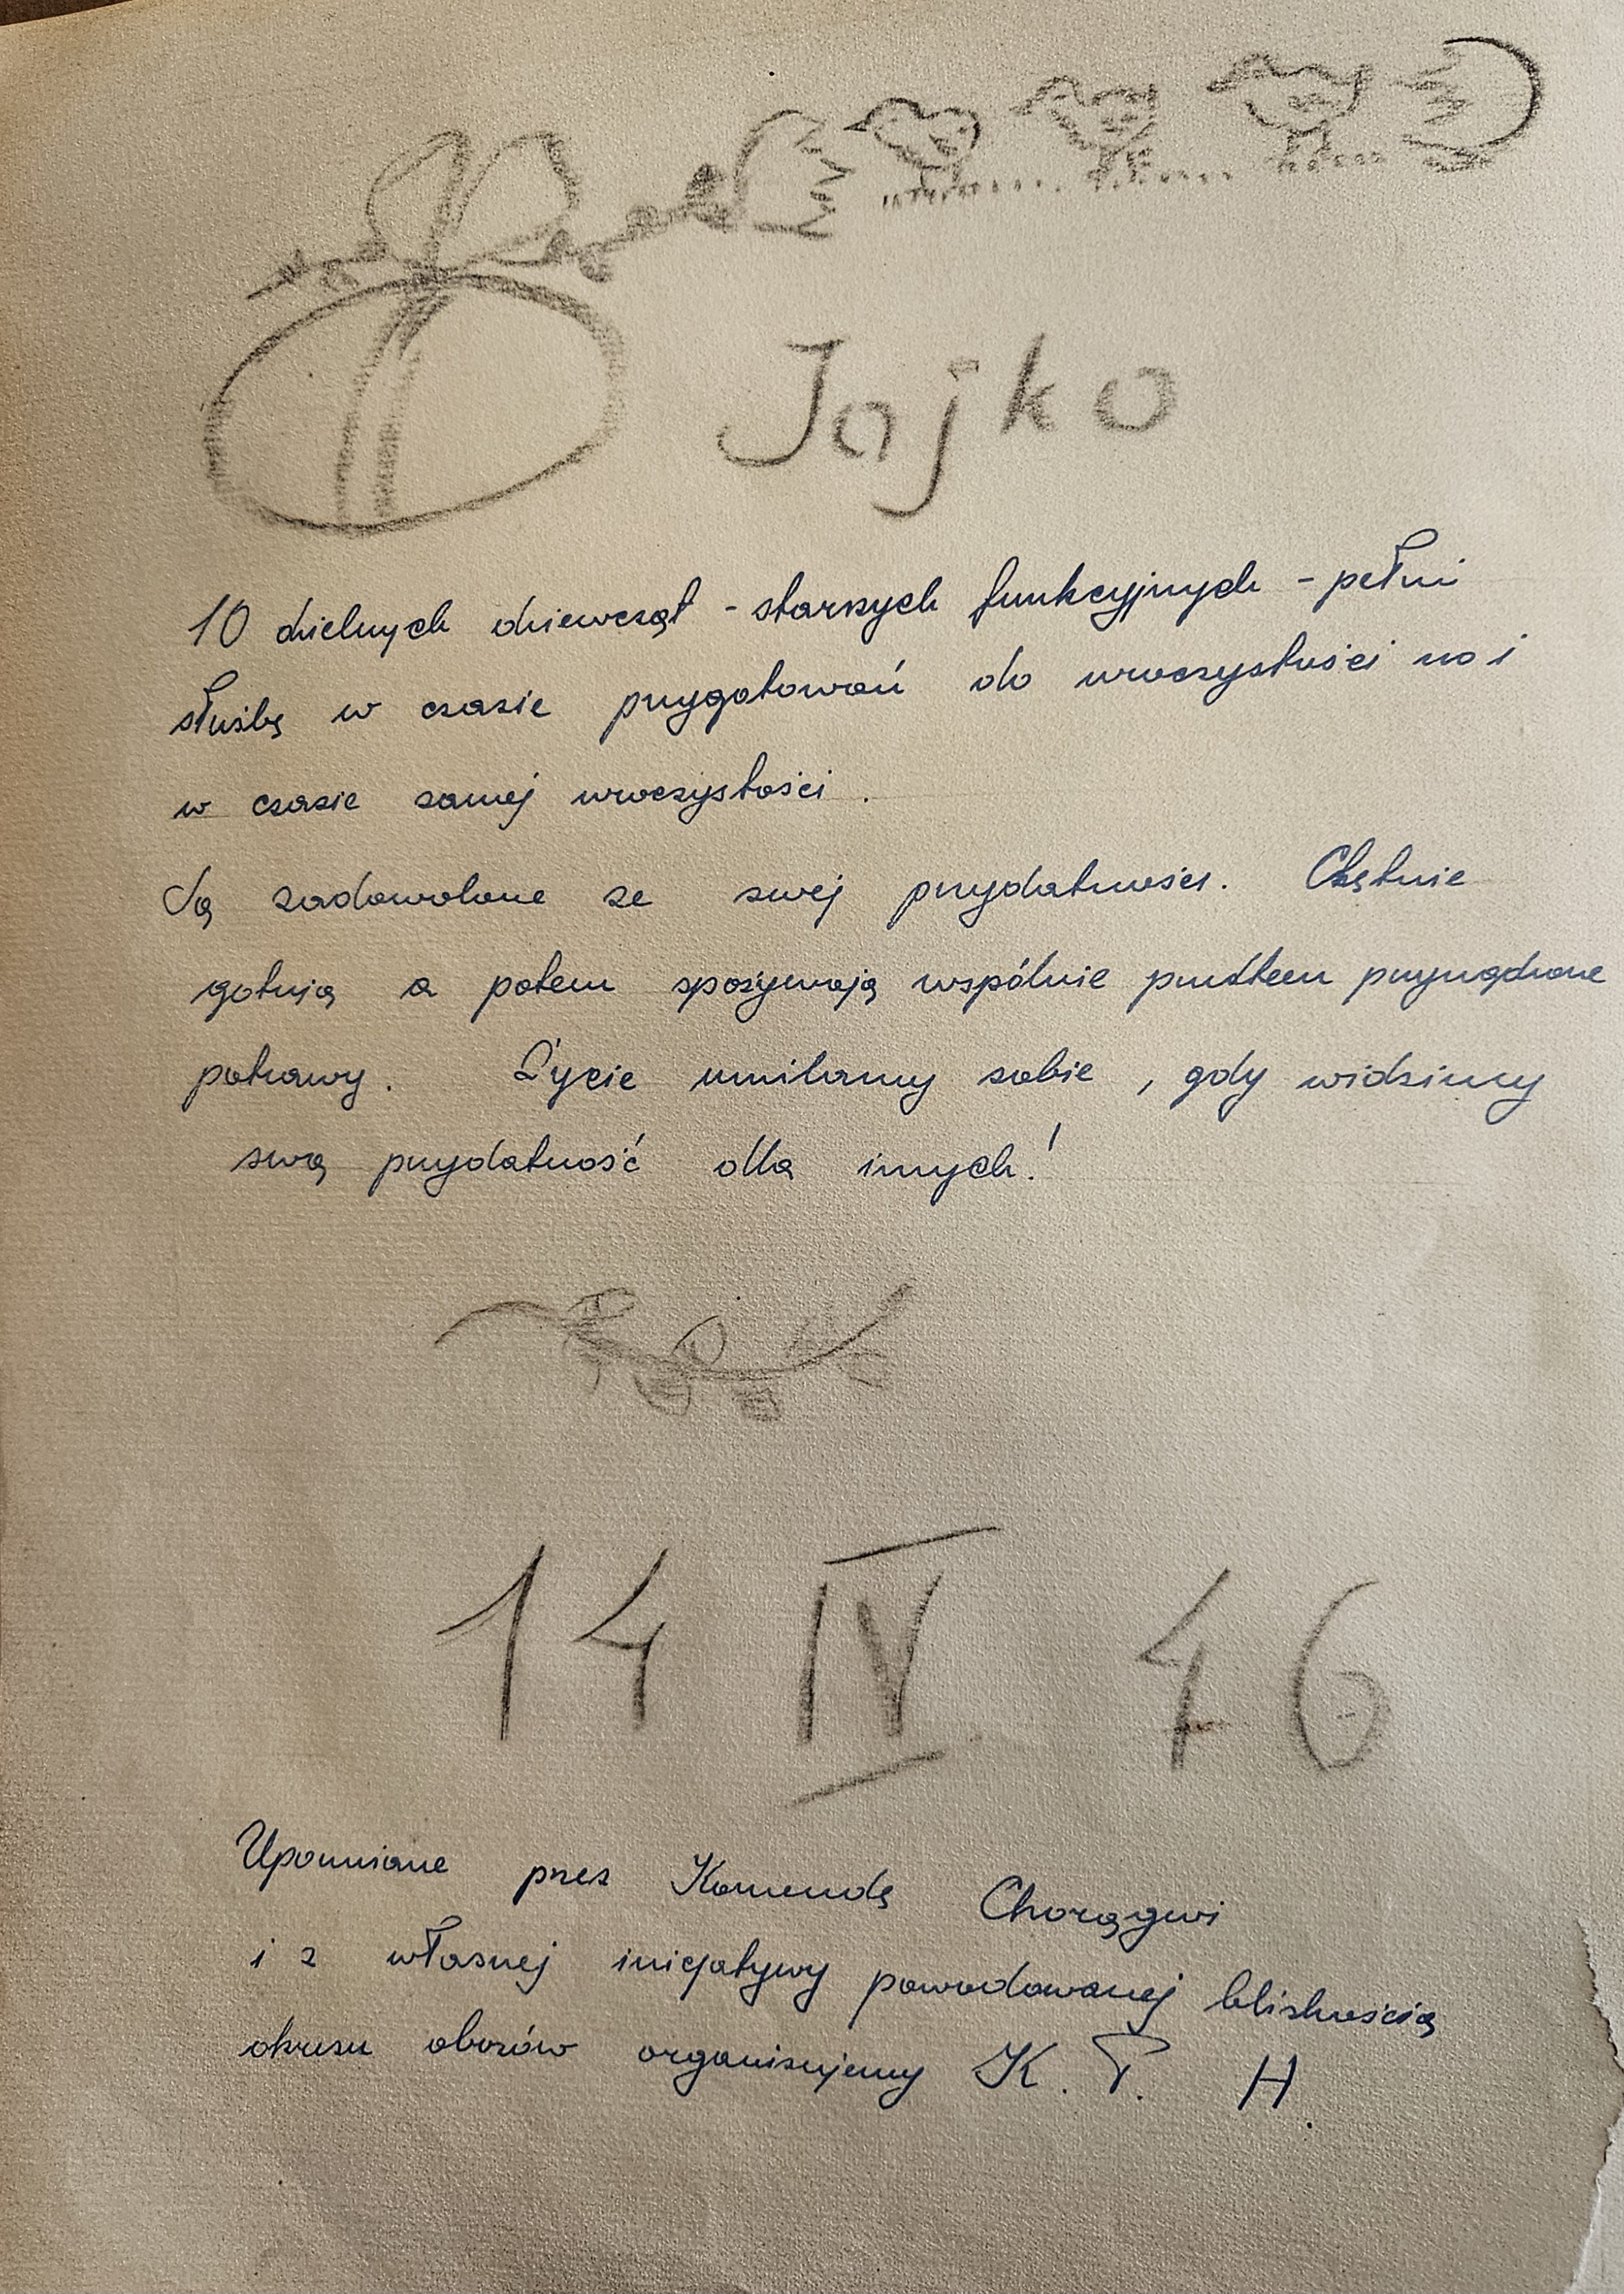 Jajko
10 dzielnych dziewcząt - starszych funkcyjnych - pełni
służbę w czasie przygotowań do uroczystości no i
w czasie samej uroczystości.
Są zadowolone ze swej przydatności. Chętnie
gotują a potem spożywają wspólnie przyrządzone
potrawy. Życie umilamy sobie, gdy widzimy
swą przydatność dla innych!
14 IV 46
Upomniane przez Komendę Chorągwi
i z własnej inicjatywy powodowanej bliskością
okresu obozów organizujemy K. P. H.